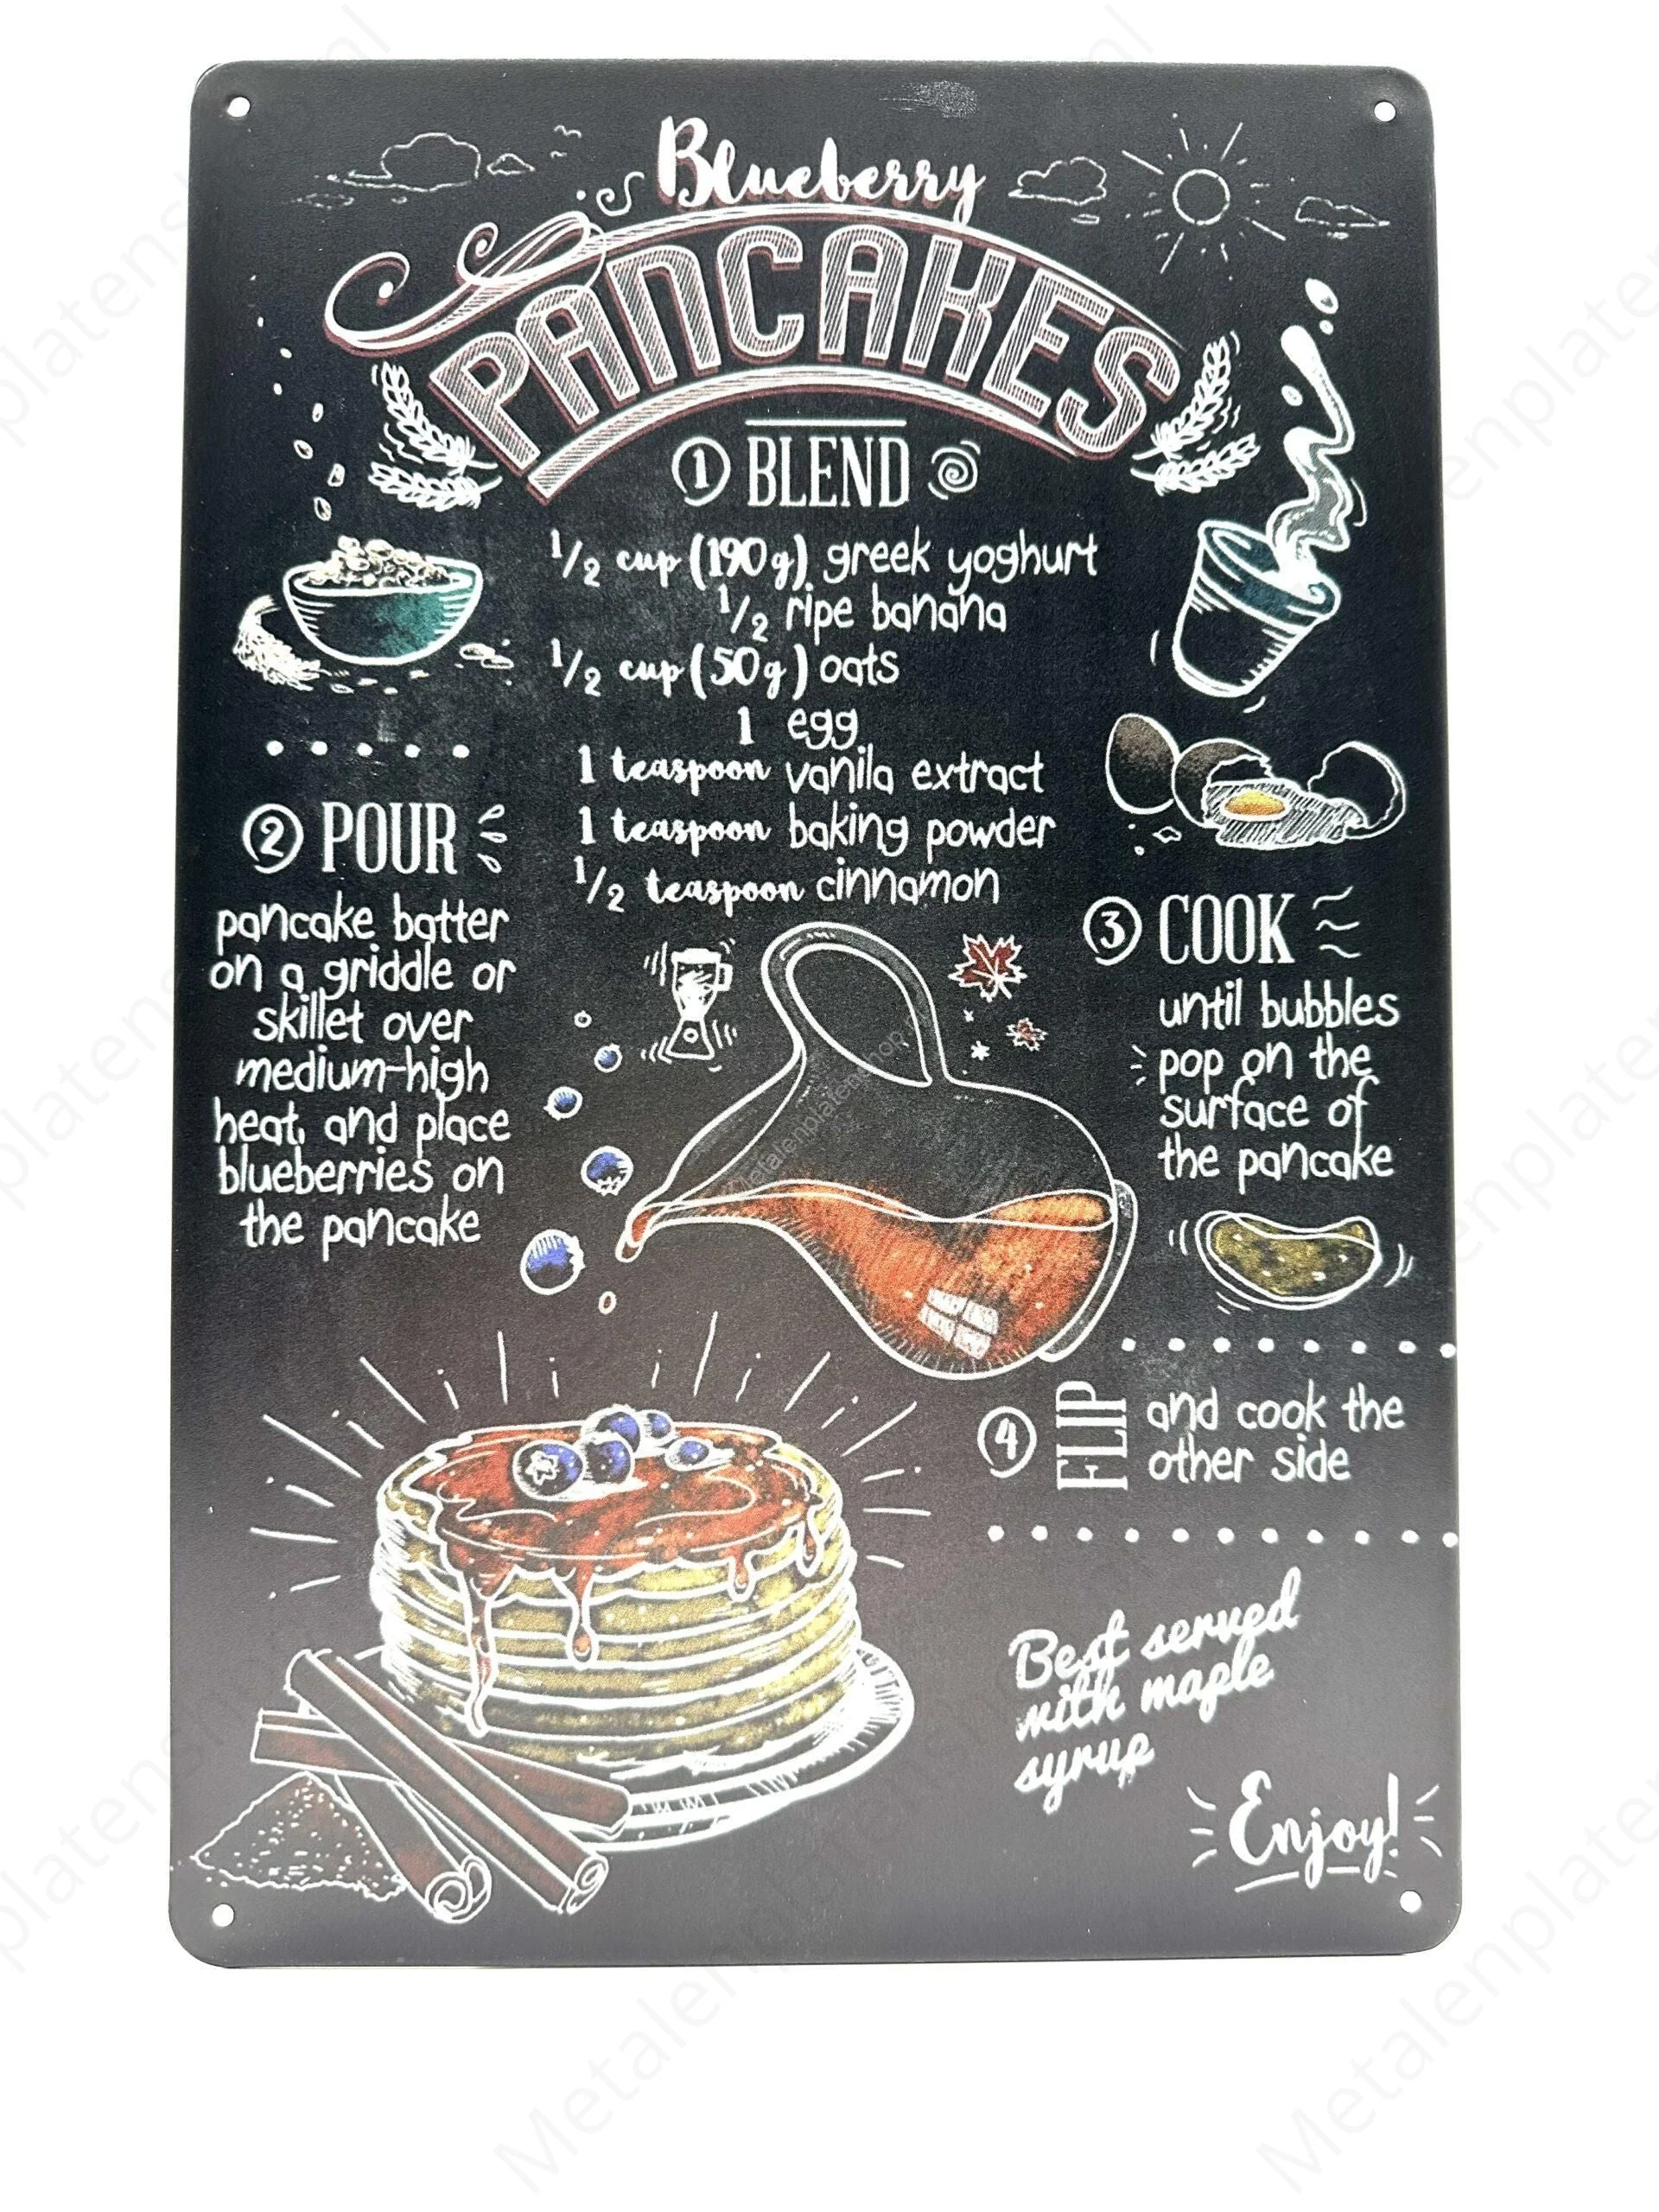 Blueberry
PANCAKES
1 BLEND
1/2 cup (190g) greek yoghurt
1/2 ripe banana
1/2 cup (50g) oats
1 egg
1 teaspoon vanila extract
1 teaspoon baking powder
1/2 teaspoon cinnamon
2 POUR
pancake batter
on a griddle or
skillet over
medium-high
heat, and place
blueberries on
the pancake
3 COOK
until bubbles
pop on the
surface of
the pancake
4 FLIP and cook the
other side
Best served
with maple
syrup
Enjoy!
Metalenplatenshop.nl